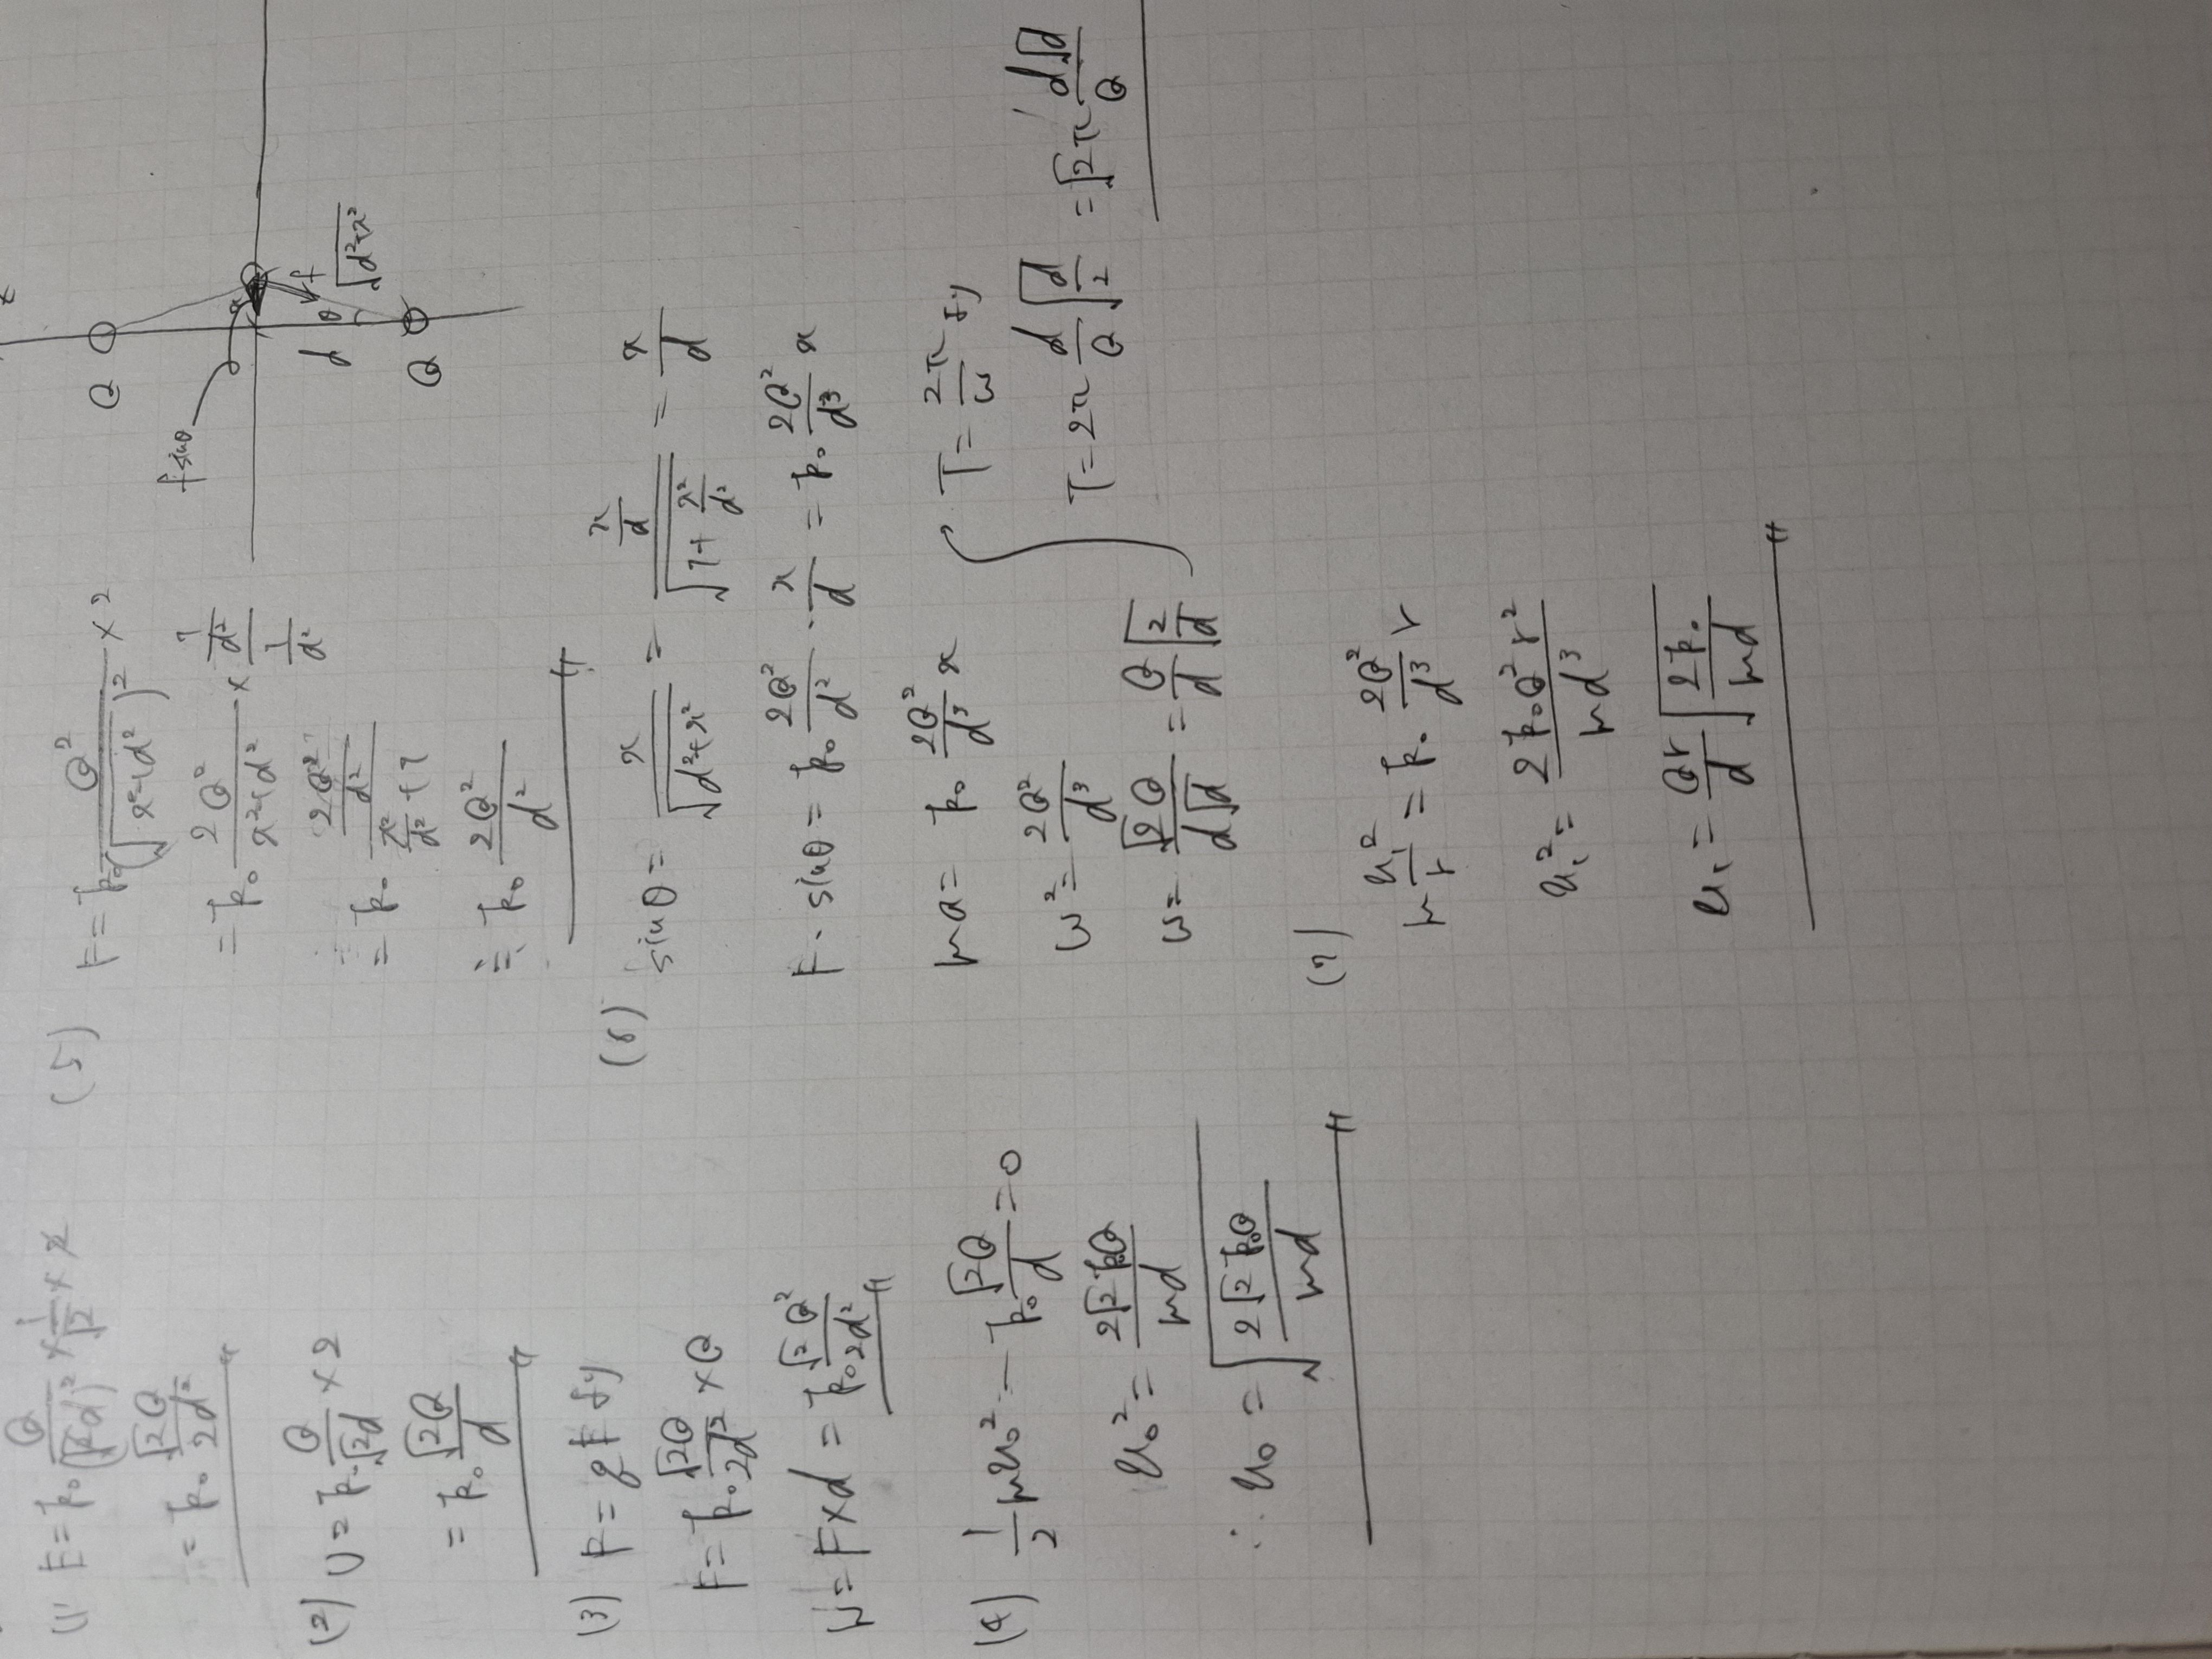 (1) E = k₀ Q/(√2d)² × 1/√2 × 2
= k₀ √2Q/2d²
(2) U = k₀ Q/√2d × 2
= k₀ √2Q/d
(3) F = qE より
F = k₀ √2Q/2d² × Q
W = F×d = k₀ √2Q²/2d²
(4) 1/2 mu₀² - k₀ √2Q/d = 0
u₀² = 2√2k₀Q/md
∴ u₀ = √(2√2k₀Q/md)
(5) F = k₀ Q²/(√(x²+d²))² × 2
= k₀ 2Q²/(x²+d²) × (1/d²)/(1/d²)
= k₀ (2Q²/d²)/(x²/d²+1)
≒ k₀ 2Q²/d²
Q
fsinθ
x
f
θ
d
√(d²+x²)
Q
(6) sinθ = x/√(d²+x²) = (x/d)/√(1+x²/d²) = x/d
F・sinθ = k₀ 2Q²/d² ・ x/d = k₀ 2Q²/d³ x
ma = k₀ 2Q²/d³ x
ω² = 2Q²/d³
ω = √2Q/d√d = Q/d √(2/d)
T = 2π/ω より
T = 2π d/Q √(d/2) = √2π d√d/Q
(7)
m u₁²/r = k₀ 2Q²/d³ r
u₁² = 2k₀Q²r²/md³
u₁ = Qr/d √(2k₀/md)